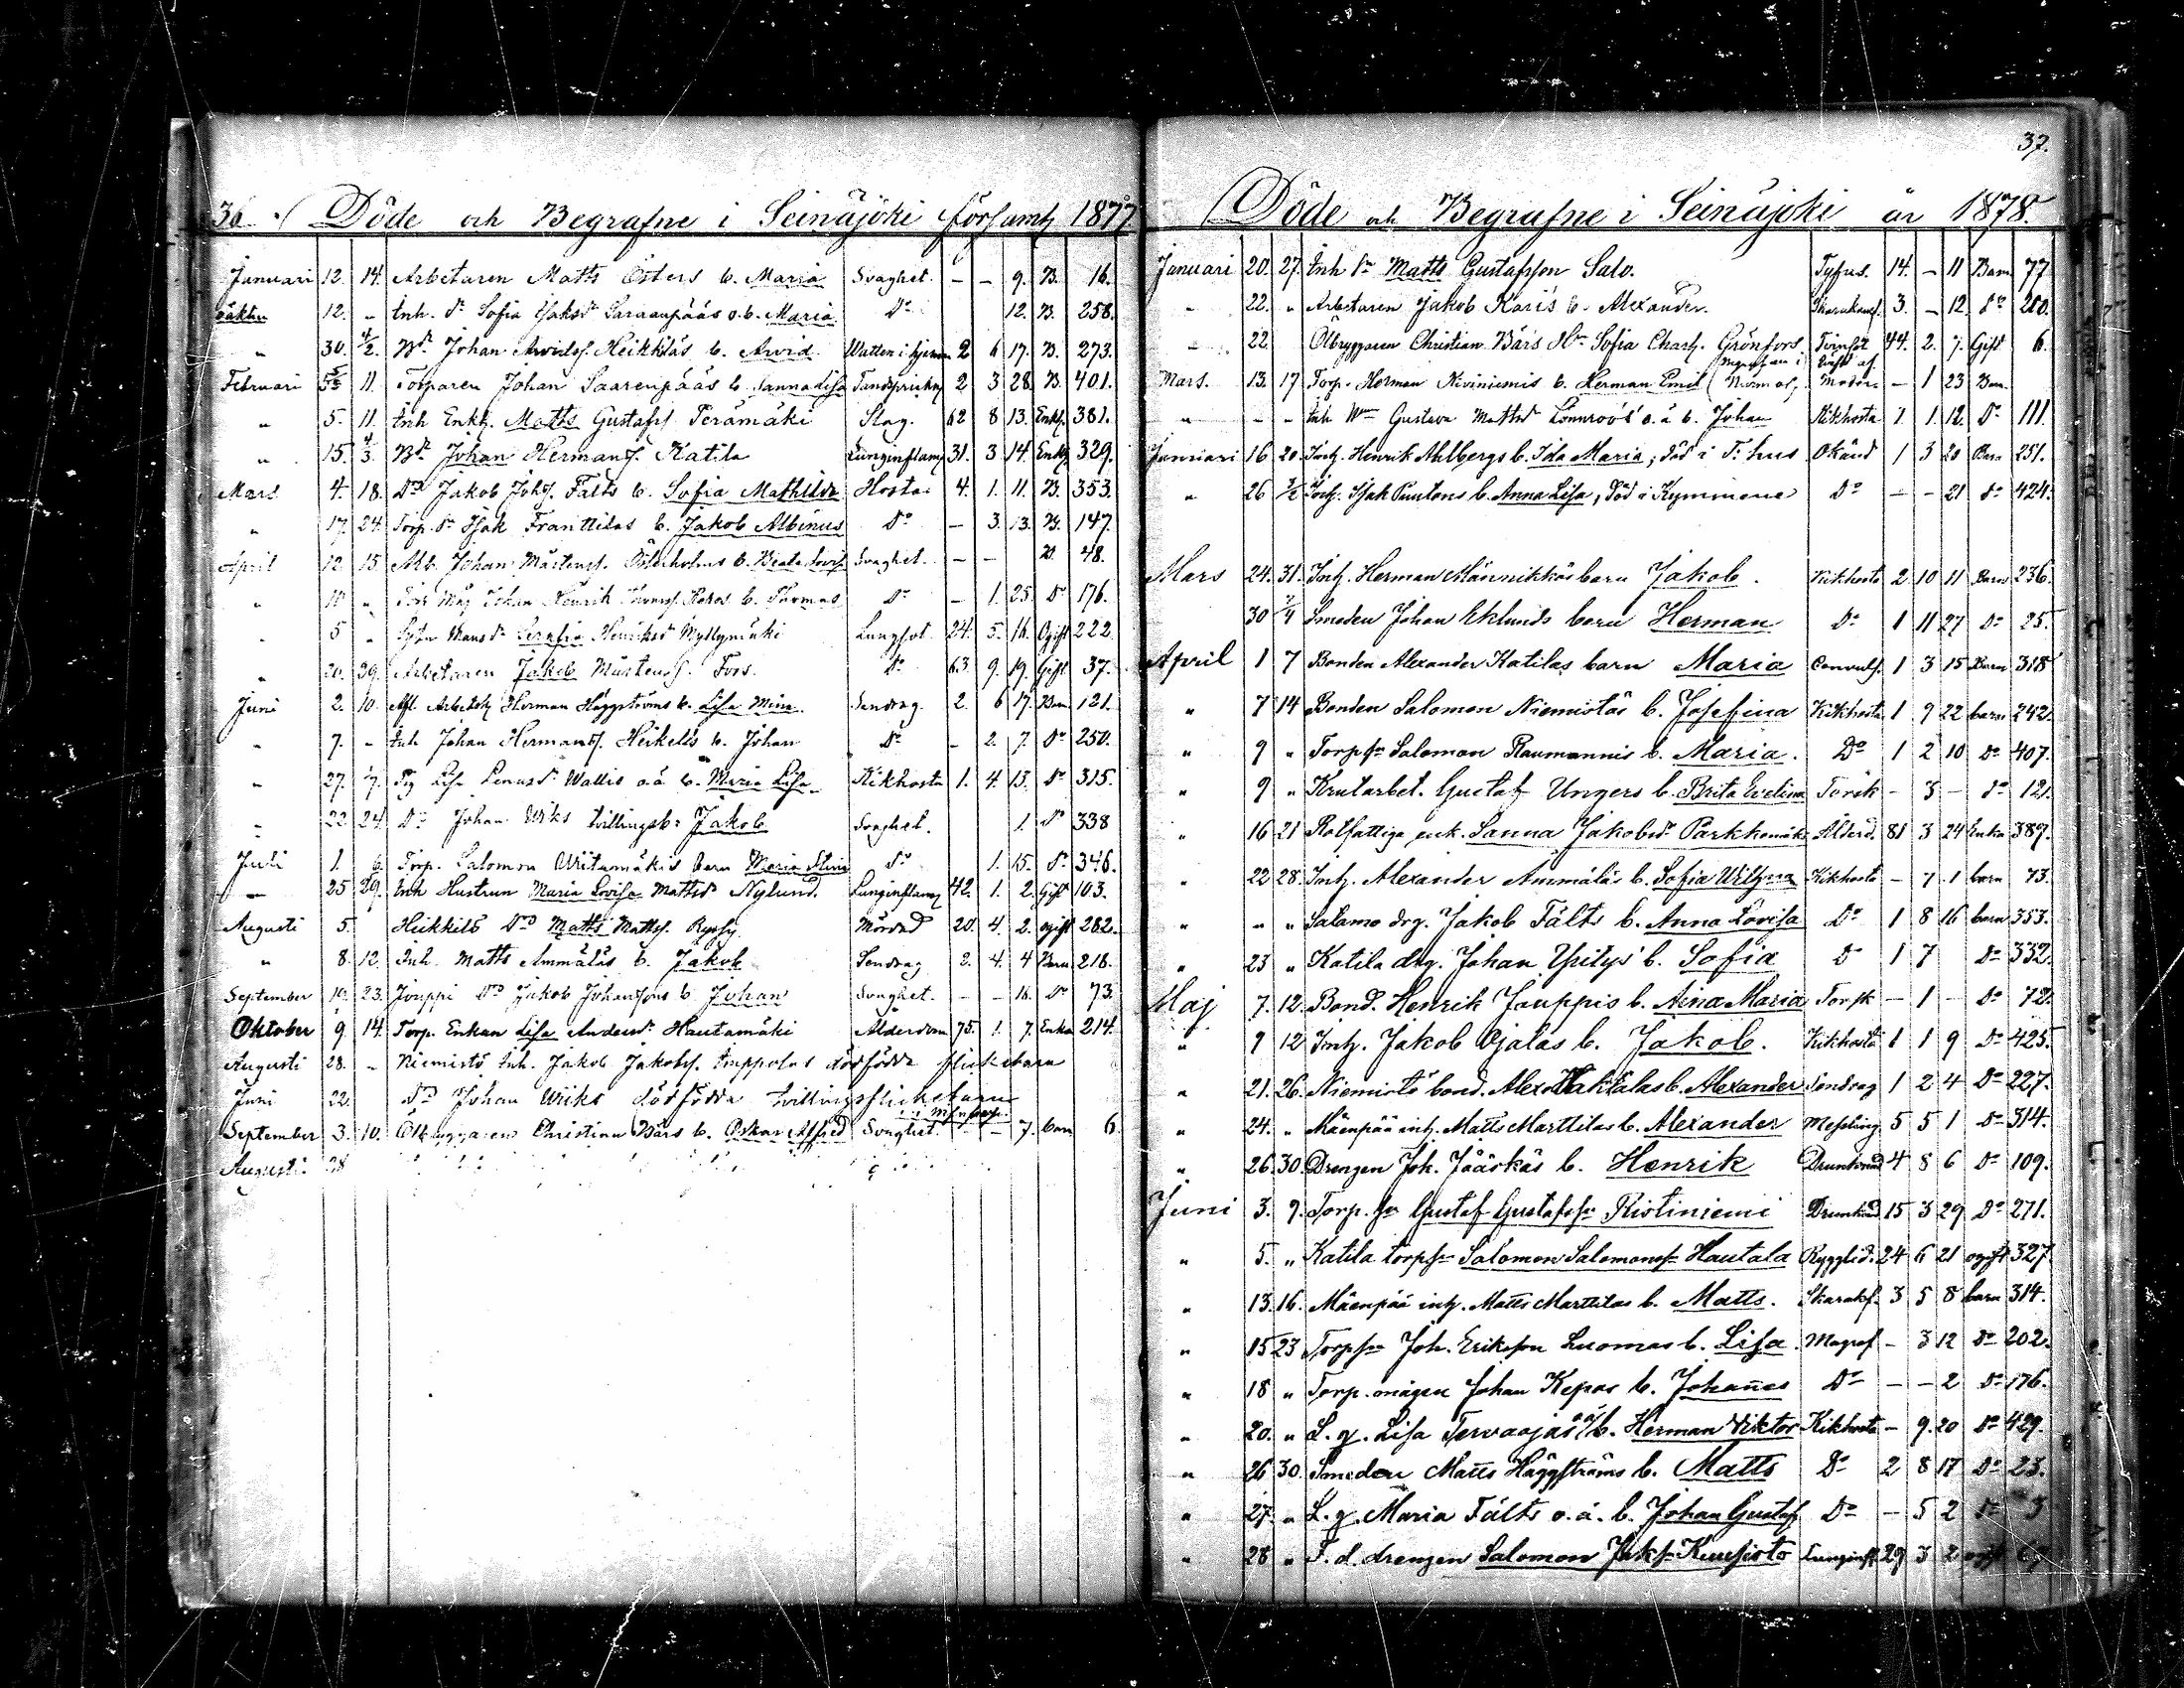 36. Döde och Begrafne i Seinäjoki församl 1877
Januari 12. 14. Arbetaren Matts Östers b. Maria Svaghet. - - 9. B. 16.
12. - Inh. Dr Sofia Jaksdr Saraanpääs o.b. Maria Do 12. B. 258.
" 30. 4/2. Bd Johan Arvidss. Heikkiläs b. Arvid Watten i hjernan 2 6 17. B. 273.
Februari 11. Torparen Johan Saarenpääs b. Sanna Lisa Tandsprickn 2 3 28. B. 401.
" 5. 11. Inh Enkl. Matts Gustafss Perämäki Slag. 62 8 13. Enkl. 381.
" 15. 4/3. Bd Johan Hermanss. Katila Lunginflam 31. 3 14. Enkl 329.
Mars 4. 18. Do Jakob Johss. Fälts b. Sofia Mathilda Hosta 4. 1. 11. B. 353.
" 17. 24 Torp. Dr Isak Franttilas b. Jakob Albinus Do - 3. 13. B. 147.
April 12 15 Arb. Johan Mårtenss. b. Beata Lovis Svaghet. - - 48.
" " Torp Måg Johan Henrik Kepos b. Thomas Do - 1. 25. Do 176.
" 5 " Serafia Henriksdr Myllymäki Lungsot 24. 5. 16. Ogift 222.
" 20. 29. Arbetaren Jakob Mårtenss. Fors. Do 63. 9. 19. Gift 37.
Juni 2. 10. Afl. Arbetsk Herman Häggströms b. Lisa Mina. Sendrag. 2. 6 17. Barn 121.
" 7. - Inh Johan Hermanss. Heikeläs b. Johan Do - 2. 7. Do 250.
" 27. 1/7. Pig Lisa Wallis o.ä b. Maria Lisa Kikhosta 1. 4. 13. Do 315.
" 22 24. Do Johan Wiks tvillingsb: Jakob Svaghet. 1. Do 338
Juli 1. 6 Torp. Salomon Wiitamäkis barn Maria Do 1. 15. Do 346.
- 25 29. Inh Hustrun Maria Lovisa Mattsdr Nylund. Lunginflam 42. 1. 2. Gift 103.
Augusti 5. Heikkilä Do Matts Mattss. Ryssy Mördad 20. 4. 2. ogift 282.
" 8. 12. Inh. Matts Ämmäläs b. Jakob Sendrag 2. 4. 4 Barn 218.
September 19. 23. Jouppi Do Jakob Johanssons b Johan Svaghet. - - 16. Do 73.
Oktober 9. 14. Torp. Enkan Lisa Andersdr Hautamäki Ålderdom 75. 1. 7. Enka 214.
Augusti 28. - Niemistö Inh. Jakob Jakobss. Impponas dödfödda flickebarn
Juni 22. Do Johan Wiiks dödfödda tvillingsflickebarn
September 3. 10. Ölbryggaren Christian Bärs b. Oskar Alfred Svaghet. - - 7. barn 6
Augusti 28
37.
Döde och Begrafne i Seinäjoki år 1878.
Januari 20. 27. Inh Sn Matts Gustafsson Salo. Tyfus. 14. - 11 Barn 77
" 22. " Arbetaren Jakob Karis b. Alexander. 3. - 12. Do 280.
" 22. Ölbryggaren Christian Bärs Hu Sofia Charl. Grönfors 44. 2. 7. Gift 6.
Mars. 13. 17 Torp. Herman Niviniemis b. Herman Emil - 1 23 Barn
" - - Inh Gustava Mattsd Lönnroos' o.ä b. Johan Kikhosta 1 1. 12. Do 111.
Januari 16 20 Inh. Henrik Ahlbergs b. Ida Maria; död i T:hus Okänd 1 3 20 Barn 251.
" 26 3/2 Isak Puntons b. Anna Lisa, död i Kymmene Do - - 21 Do 424.
Mars 24. 31. Inh. Herman Männikkös barn Jakob. Kikhosta 2 10 11 Barn 236.
30 7/4 Smeden Johan Eklunds barn Herman Do 1 11 27 Do 25.
April 1 7 Bonden Alexander Katilas barn Maria Convuls. 1 3 15 Barn 318
" 7 14 Bonden Salomon Niemistös b. Josefina Kikhosta 1 9 22 barn 242.
" 9 " Torpsn Salomon Raumannis b. Maria. Do 1 2 10 Do 407.
" 9 " Krutarbet. Gustaf Ungers b. Brita Evelina Torsk - 3 - Do 121.
" 16 21 Rotfattiga enk. Sanna Jakobsdr Parkkomäki Ålderd. 81 3 24 Enka 389.
" 22 28. Inh. Alexander Ämmäläs b. Sofia Wilhma Kikhosta - 7. 1 barn 73.
" " " Salamo drg. Jakob Fälts b. Anna Lovisa Do 1 8 16 barn 353.
" 23 " Katila drg. Johan Yritys' b. Sofia Do 1 7 Do 332.
Maj 7. 12. Bond. Henrik Jouppis b. Aina Maria Torsk - 1 - Do 72.
" 9 12 Inh. Jakob Ojalas b. Jakob. Kikhosta 1 1 9 Do 425.
" 21. 26. Niemistö bond. Alex. b. Alexander Sendrag 1 2 4 Do 227.
" 24. " Mäenpää inh. Matts Marttilas b. Alexander Messling 5 5 1 Do 314.
" 26. 30. Drengen Joh. Jääskäs b. Henrik Drunknad 4 8 6 Do 109.
Juni 3. 9. Torp. sn Gustaf Gustafssn Ristiniemi Drunknad 15 3 29 Do 271.
" 5. " Katila torpsn Salomon Salomonss. Hautala Ryggled. 24 6 21 ogift 327.
" 13. 16. Mäenpää inh. Matts Marttilas b. Matts. Skarakf. 3 5 8 barn 314.
" 15 23 Torpsn Joh. Eriksson Luomas b. Lisa. Magref - 3 12 Do 202.
" 18 " Torp. mågen Johan Kepos b. Johannes Do - - 2 Do 176.
" 20. " L. q. Lisa Tervaojas o.ä. b. Herman Viktor Kikhosta - 9. 20 Do 429.
" 26 30. Smeden Matts Häggströms b. Matts Do 2 8 17 Do 23.
" 27. " L. q. Maria Fälts o.ä. b. Johan Gustaf Do - 5 2 Do 3
" 28 " F. d. drengen Salomon Jakss. Kuusisto Lunginfl. 29 3 2 ogift